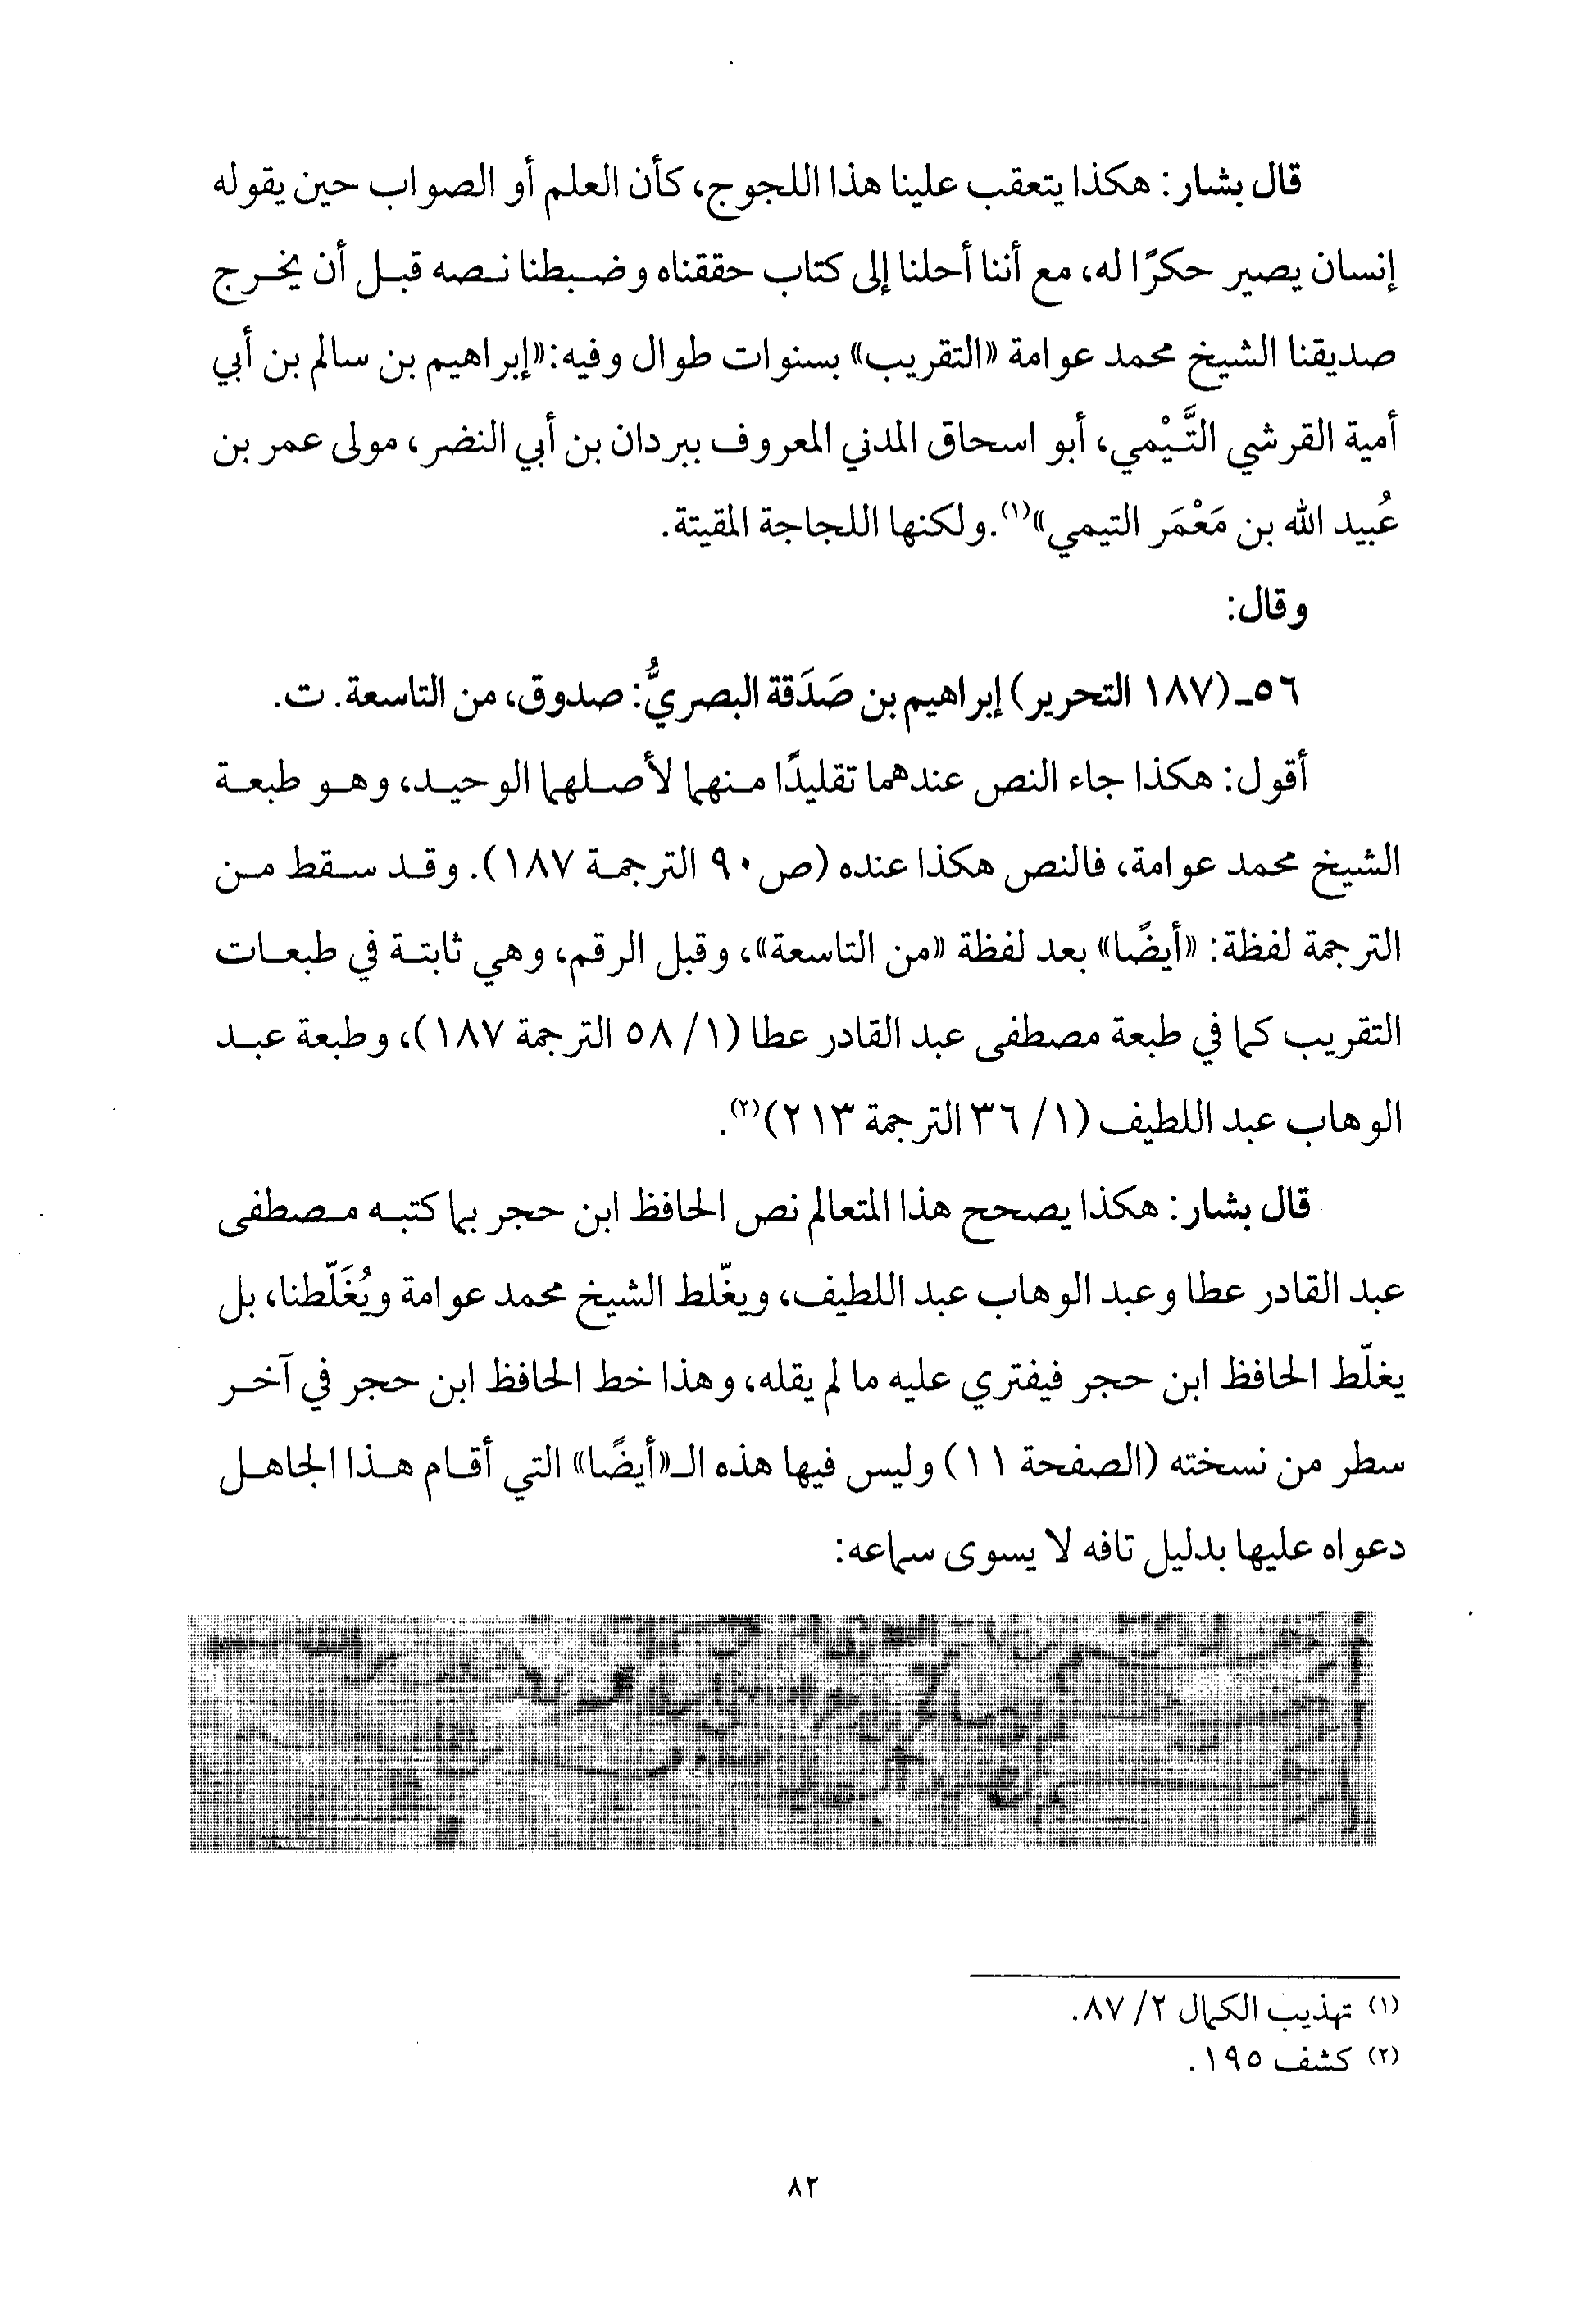 قال بشار: هكذا يتعقب علينا هذا اللجوج، كأن العلم أو الصواب حين يقوله
إنسان يصير حكرًا له، مع أننا أحلنا إلى كتاب حققناه وضبطنا نصه قبل أن يخرج
صديقنا الشيخ محمد عوامة «التقريب» بسنوات طوال وفيه:«إبراهيم بن سالم بن أبي
أمية القرشي التَّيْمي، أبو اسحاق المدني المعروف ببردان بن أبي النضر، مولى عمر بن
عُبيد الله بن مَعْمَر التيمي»(١).ولكنها اللجاجة المقيتة.
وقال:
٥٦ـ(١٨٧ التحرير) إبراهيم بن صَدَقة البصريُّ: صدوق، من التاسعة. ت.
أقول: هكذا جاء النص عندهما تقليدًا منهما لأصلهما الوحيد، وهو طبعة
الشيخ محمد عوامة، فالنص هكذا عنده (ص٩٠ الترجمة ١٨٧). وقد سقط من
الترجمة لفظة: «أيضًا» بعد لفظة «من التاسعة»، وقبل الرقم، وهي ثابتة في طبعات
التقريب كما في طبعة مصطفى عبد القادر عطا (١/ ٥٨ الترجمة ١٨٧)، وطبعة عبد
الوهاب عبد اللطيف (١/ ٣٦ الترجمة ٢١٣)(٢).
قال بشار: هكذا يصحح هذا المتعالم نص الحافظ ابن حجر بما كتبه مصطفى
عبد القادر عطا وعبد الوهاب عبد اللطيف، ويغّلط الشيخ محمد عوامة ويُغَلّطنا، بل
يغلّط الحافظ ابن حجر فيفتري عليه ما لم يقله، وهذا خط الحافظ ابن حجر في آخر
سطر من نسخته (الصفحة ١١) وليس فيها هذه الـ«أيضًا» التي أقام هذا الجاهل
دعواه عليها بدليل تافه لا يسوى سماعه:
(١) تهذيب الكمال ٢/ ٨٧.
(٢) كشف ١٩٥.
٨٢